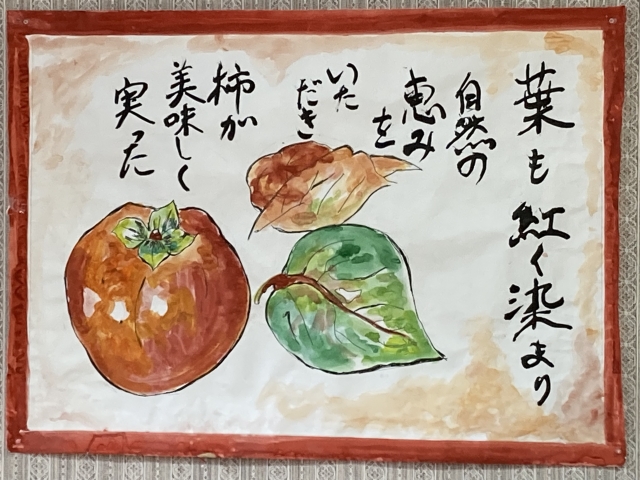 葉も紅く染まり
自然の
恵み
を
いた
だき
柿が
美味しく
実った